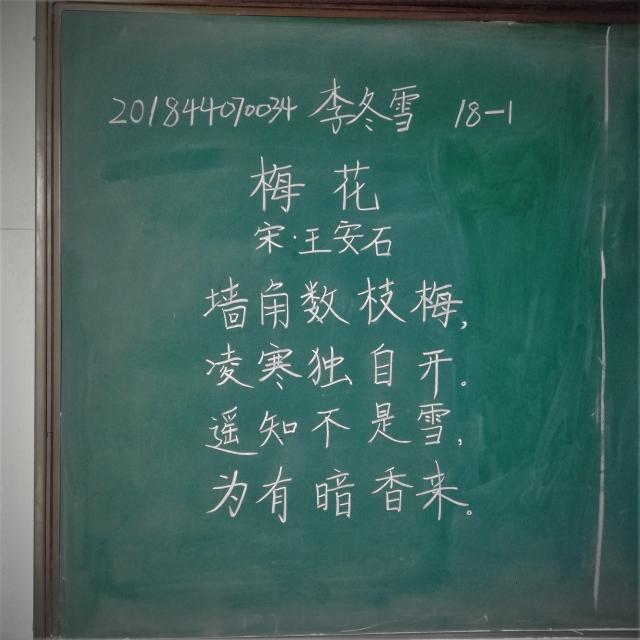 201844070034 李冬雪 18-1
梅花
宋·王安石
墙角数枝梅,
凌寒独自开。
遥知不是雪,
为有暗香来。